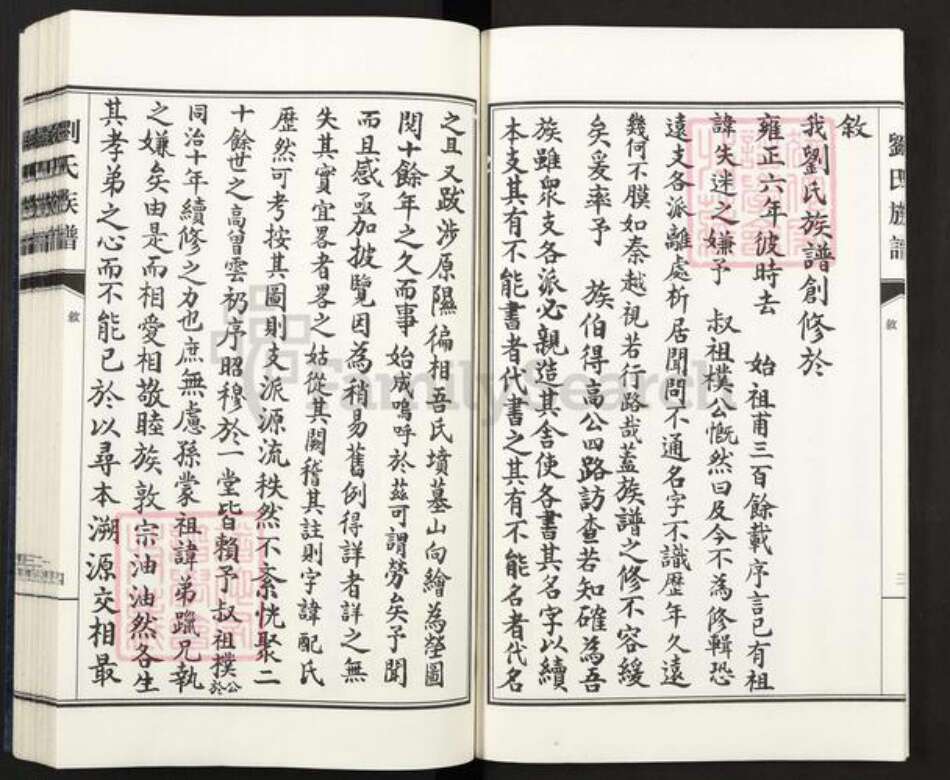 劉氏族譜
敘
敘
我劉氏族譜創修於
雍正六年彼時去 始祖甫三百餘載序言已有祖
諱失迷之嫌予 叔祖樸公慨然曰及今不為修輯恐
遠支各派離處析居聞問不通名字不識歷年久遠
幾何不膜如秦越視若行路哉蓋族譜之修不容緩
矣爰率予 族伯得高公四路訪查若知確為吾
族雖眾支各派必親造其舍使各書其名字以續
本支其有不能書者代書之其有不能名者代名
之且又跋涉原隰徧相吾氏墳墓山向繪為塋圖
閱十餘年之久而事始成嗚呼於茲可謂勞矣予聞
而且感亟加披覽因為稍易舊例得詳者詳之無
失其實宜畧者畧之姑從其闕稽其註則字諱配氏
歷然可考按其圖則支派源流秩然不紊恍聚二
十餘世之高曾雲礽序昭穆於一堂皆賴予叔祖樸公於
同治十年續修之力也庶無慮孫蒙祖諱弟躐兄執
之嫌矣由是而相愛相敬睦族敦宗油油然各生
其孝弟之心而不能已於以尋本溯源交相最
劉氏族譜
敘
FamilySearch